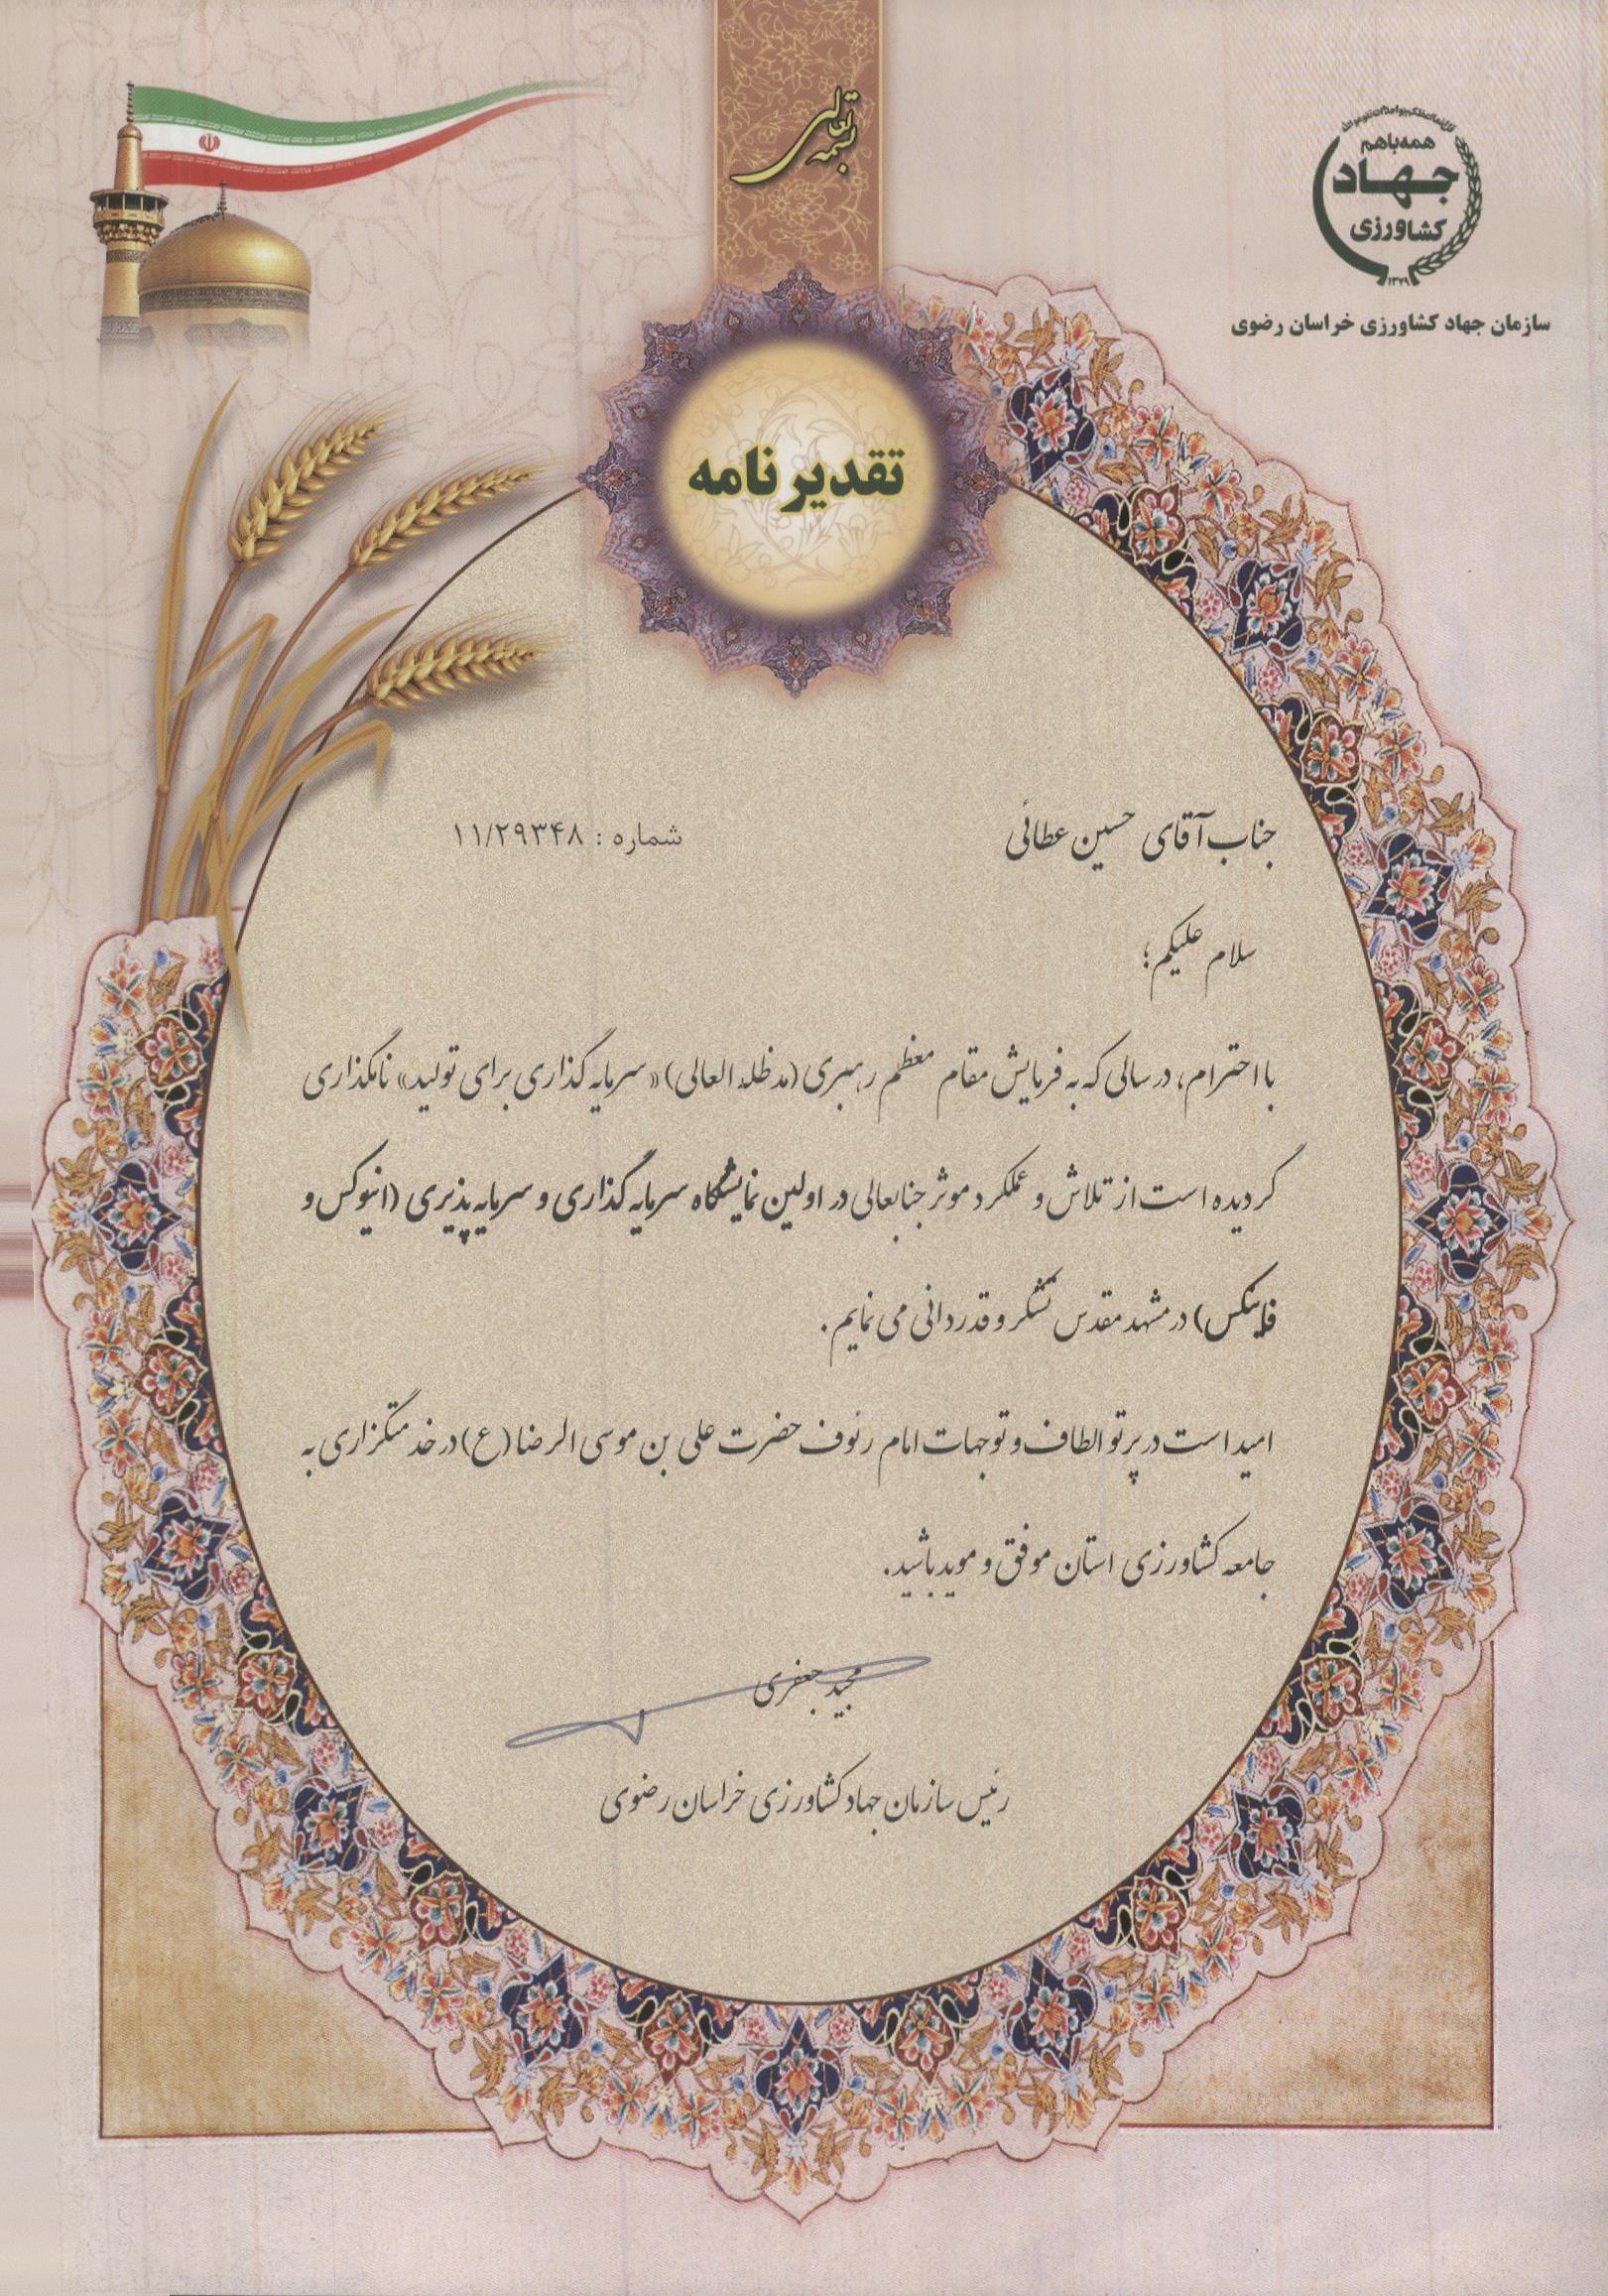 بسمه تعالی
همه با هم
جهاد
کشاورزی
۱۳۷۹
سازمان جهاد کشاورزی خراسان رضوی
تقدیرنامه
جناب آقای حسین عطائی
شماره : ۱۱/۲۹۳۴۸
سلام علیکم؛
با احترام، در سالی که به فرمایش مقام معظم رهبری (مدظله العالی) «سرمایه گذاری برای تولید» نامگذاری
گردیده است از تلاش و عملکرد موثر جنابعالی در اولین نمایشگاه سرمایه گذاری و سرمایه پذیری (اینوکس و
فاینکس) در مشهد مقدس تشکر و قدردانی می نمایم.
امید است در پرتو الطاف و توجهات امام رئوف حضرت علی بن موسی الرضا (ع) در خدمتگزاری به
جامعه کشاورزی استان موفق و موید باشید.
مجید جعفری
رئیس سازمان جهاد کشاورزی خراسان رضوی